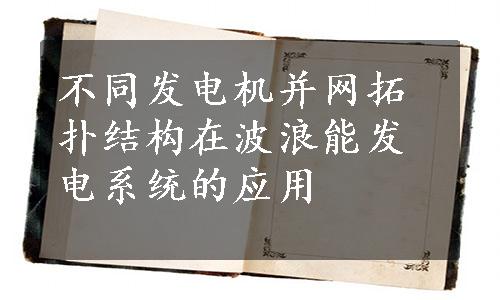 不同发电机并网拓
扑结构在波浪能发
电系统的应用